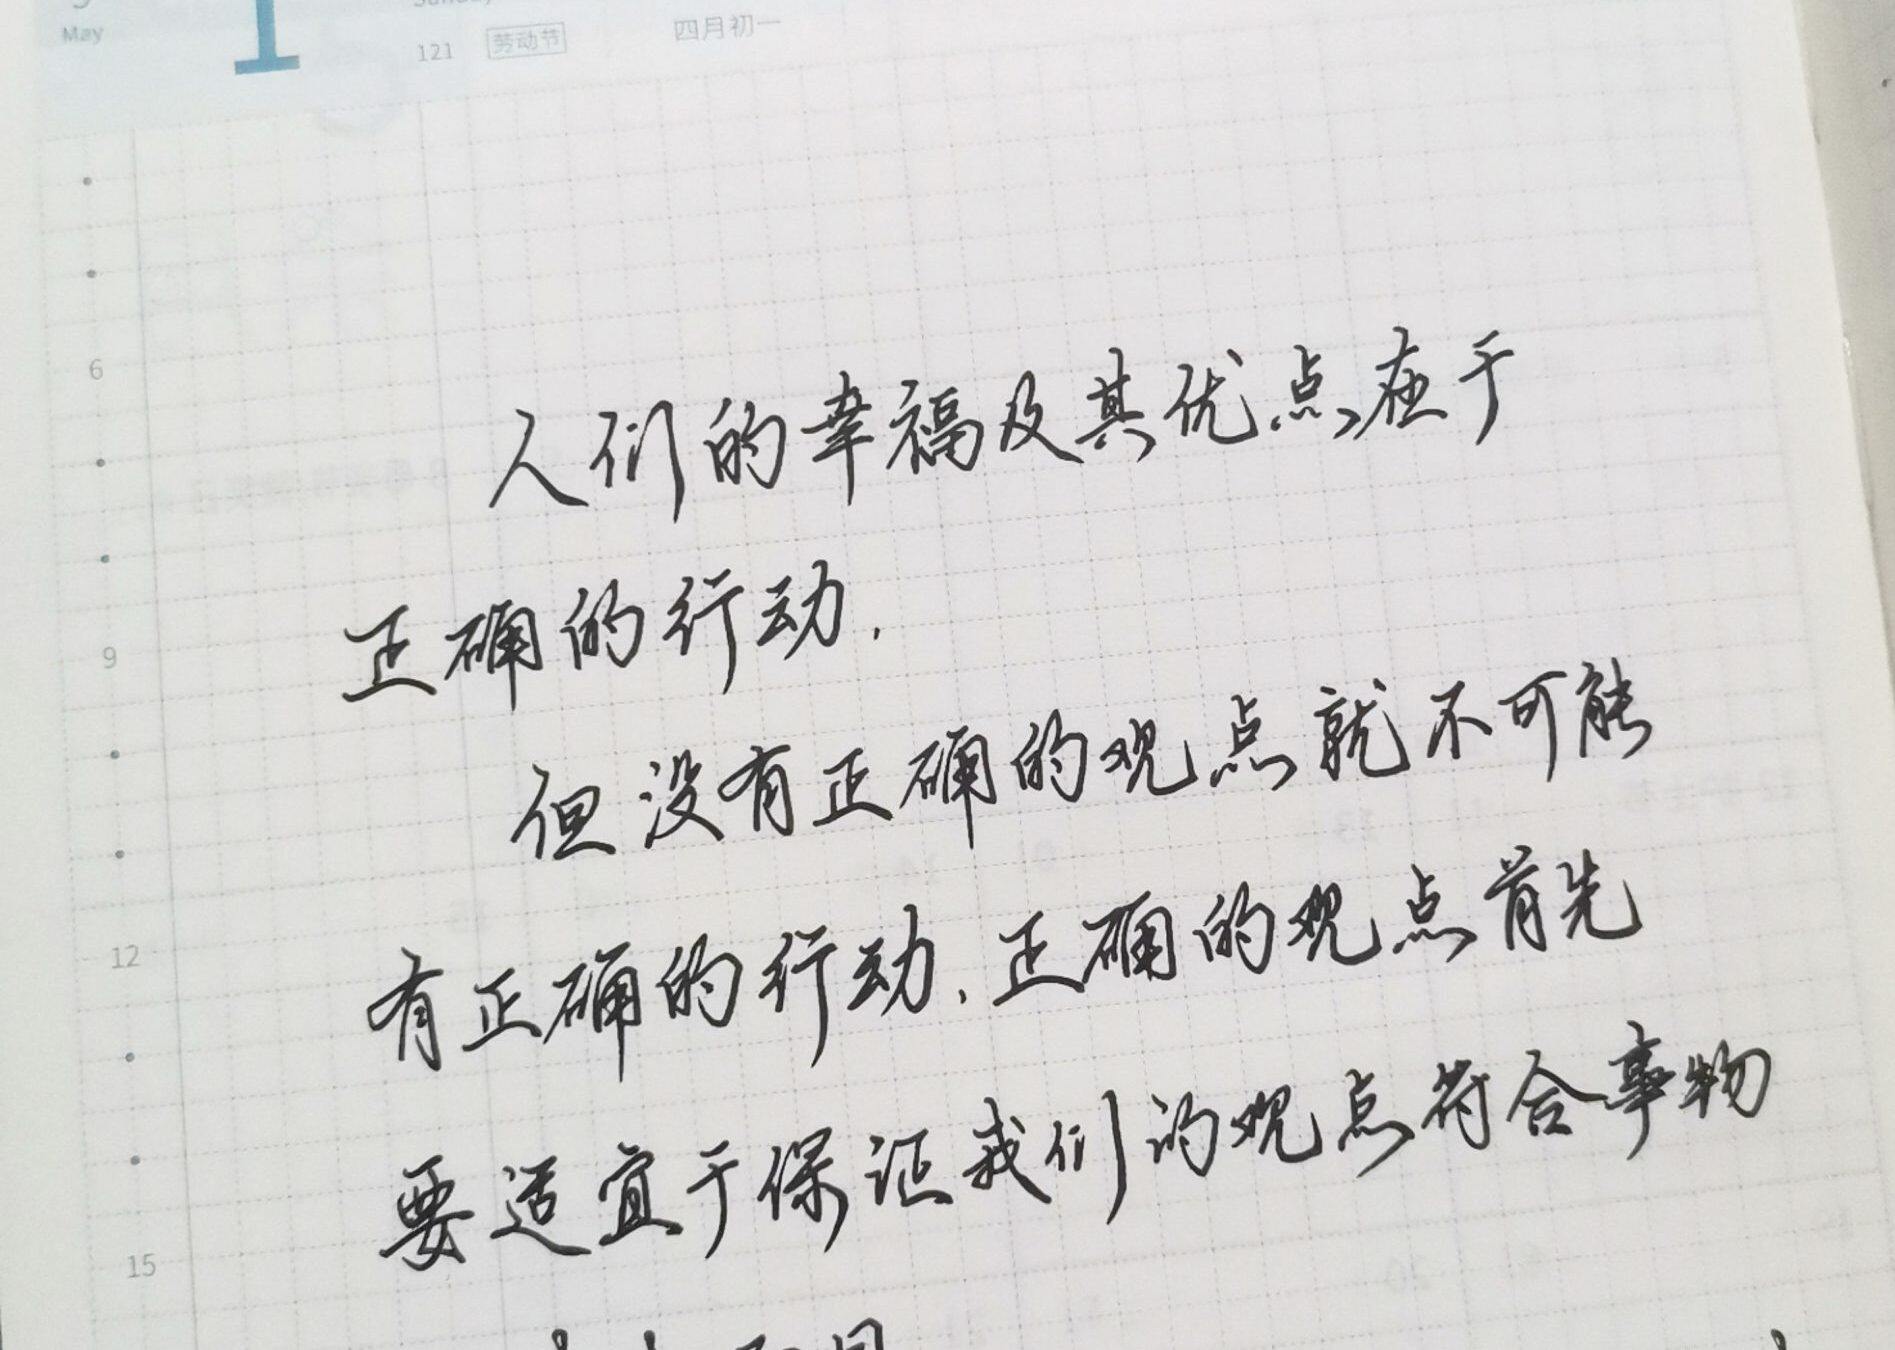 May
1
121 劳动节 四月初一
6
人们的幸福及其优点在于
9
正确的行动.
但没有正确的观点就不可能
12
有正确的行动.正确的观点首先
要适宜于保证我们的观点符合事物
15